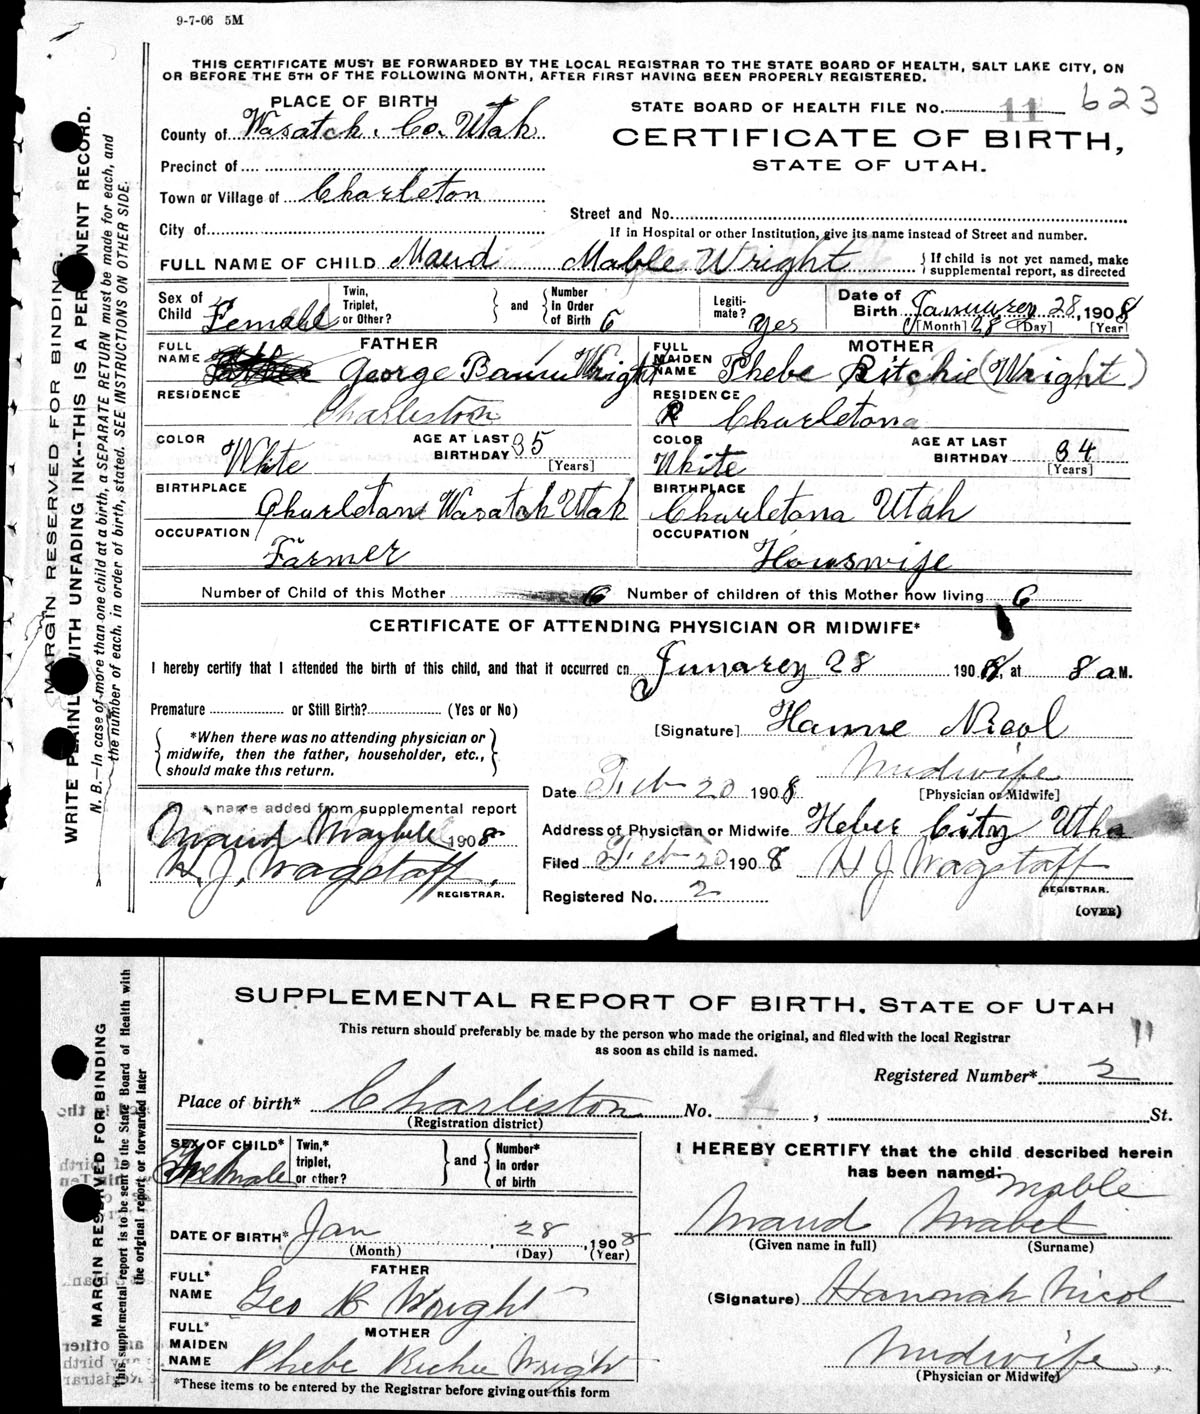 9-7-06 5M
THIS CERTIFICATE MUST BE FORWARDED BY THE LOCAL REGISTRAR TO THE STATE BOARD OF HEALTH, SALT LAKE CITY, ON
OR BEFORE THE 5TH OF THE FOLLOWING MONTH, AFTER FIRST HAVING BEEN PROPERLY REGISTERED.
PLACE OF BIRTH
STATE BOARD OF HEALTH FILE No. 11 623
County of Wasatch. Co. Utah
CERTIFICATE OF BIRTH,
Precinct of
STATE OF UTAH.
Town or Village of Charleton
Street and No.
City of
If in Hospital or other Institution, give its name instead of Street and number.
FULL NAME OF CHILD Maud Mable Wright { If child is not yet named, make supplemental report, as directed
Sex of Child Female Twin, Triplet, or Other? } and { Number in Order of Birth 6 Legitimate? Yes Date of Birth Januarey 28, 1908
[Month] 28 [Day] [Year]
FATHER
MOTHER
FULL NAME George Wright
FULL MAIDEN NAME Phebe Ritchie (Wright)
RESIDENCE Charleston
RESIDENCE Charletona
COLOR White AGE AT LAST BIRTHDAY 35 [Years]
COLOR White AGE AT LAST BIRTHDAY 34 [Years]
BIRTHPLACE Charletan Wasatch Utah
BIRTHPLACE Charletona Utah
OCCUPATION Farmer
OCCUPATION Houswife
Number of Child of this Mother 6 Number of children of this Mother now living 6
CERTIFICATE OF ATTENDING PHYSICIAN OR MIDWIFE*
I hereby certify that I attended the birth of this child, and that it occurred on Junarey 28 1908, at 8 a M.
Premature or Still Birth? (Yes or No)
[Signature] Hanne Nicol
{ *When there was no attending physician or midwife, then the father, householder, etc., should make this return. }
Midwife
[Physician or Midwife]
Date Feb 20 1908
name added from supplemental report
Maud Maybell 1908
Address of Physician or Midwife Heber City Utha
H. J. Wagstaff.
REGISTRAR.
Filed Feb 20 1908 H J Wagstaff
REGISTRAR.
Registered No. 2
(OVER)
MARGIN RESERVED FOR BINDING.
WRITE PLAINLY WITH UNFADING INK--THIS IS A PERMANENT RECORD.
N. B.—In case of more than one child at a birth, a SEPARATE RETURN must be made for each, and
the number of each, in order of birth, stated. SEE INSTRUCTIONS ON OTHER SIDE.
SUPPLEMENTAL REPORT OF BIRTH, STATE OF UTAH
This return should preferably be made by the person who made the original, and filed with the local Registrar
as soon as child is named.
11
Registered Number* 2
Place of birth* Charleston No. , St.
(Registration district)
SEX OF CHILD* Female Twin,* triplet, or other? } and { Number* in order of birth
I HEREBY CERTIFY that the child described herein
has been named:
Mable
Maud Mabel
(Given name in full) (Surname)
DATE OF BIRTH* Jan 28, 1908
(Month) (Day) (Year)
FATHER
FULL* NAME Geo B Wright
(Signature) Hannah Nicol
MOTHER
FULL* MAIDEN NAME Phebe Wright
Midwife.
(Physician or Midwife)
*These items to be entered by the Registrar before giving out this form
MARGIN RESERVED FOR BINDING
This supplemental report is to be sent to the State Board of Health with
the original report or forwarded later